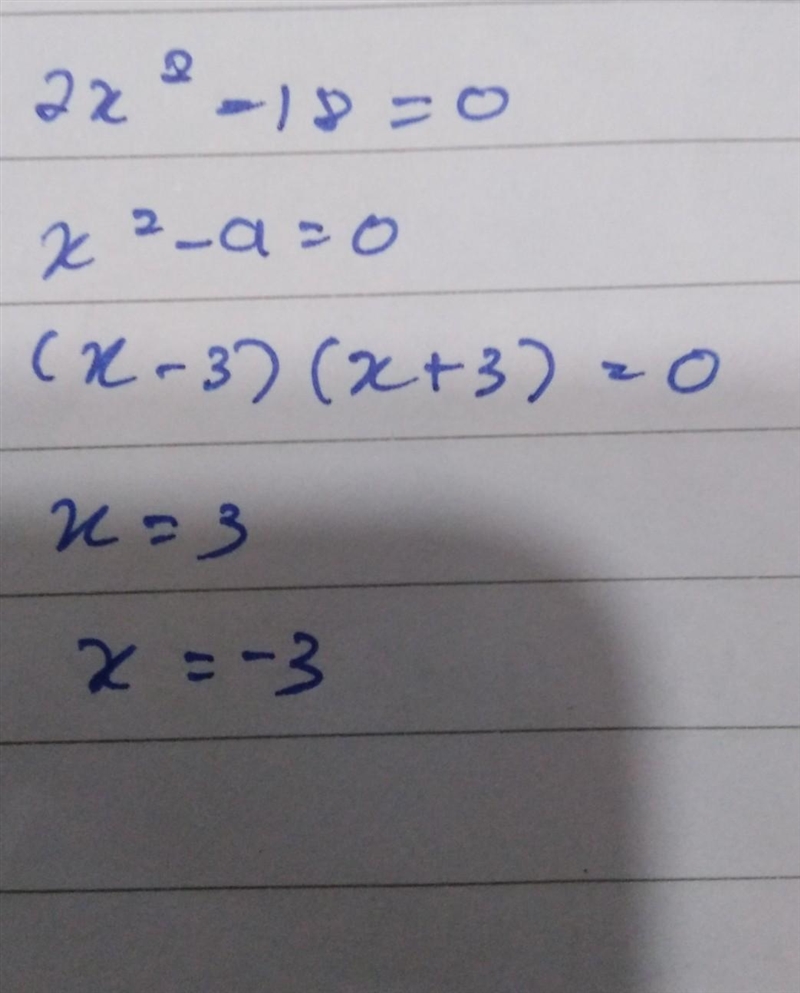 2x² - 18 = 0
x² - 9 = 0
(x - 3) (x + 3) = 0
x = 3
x = -3